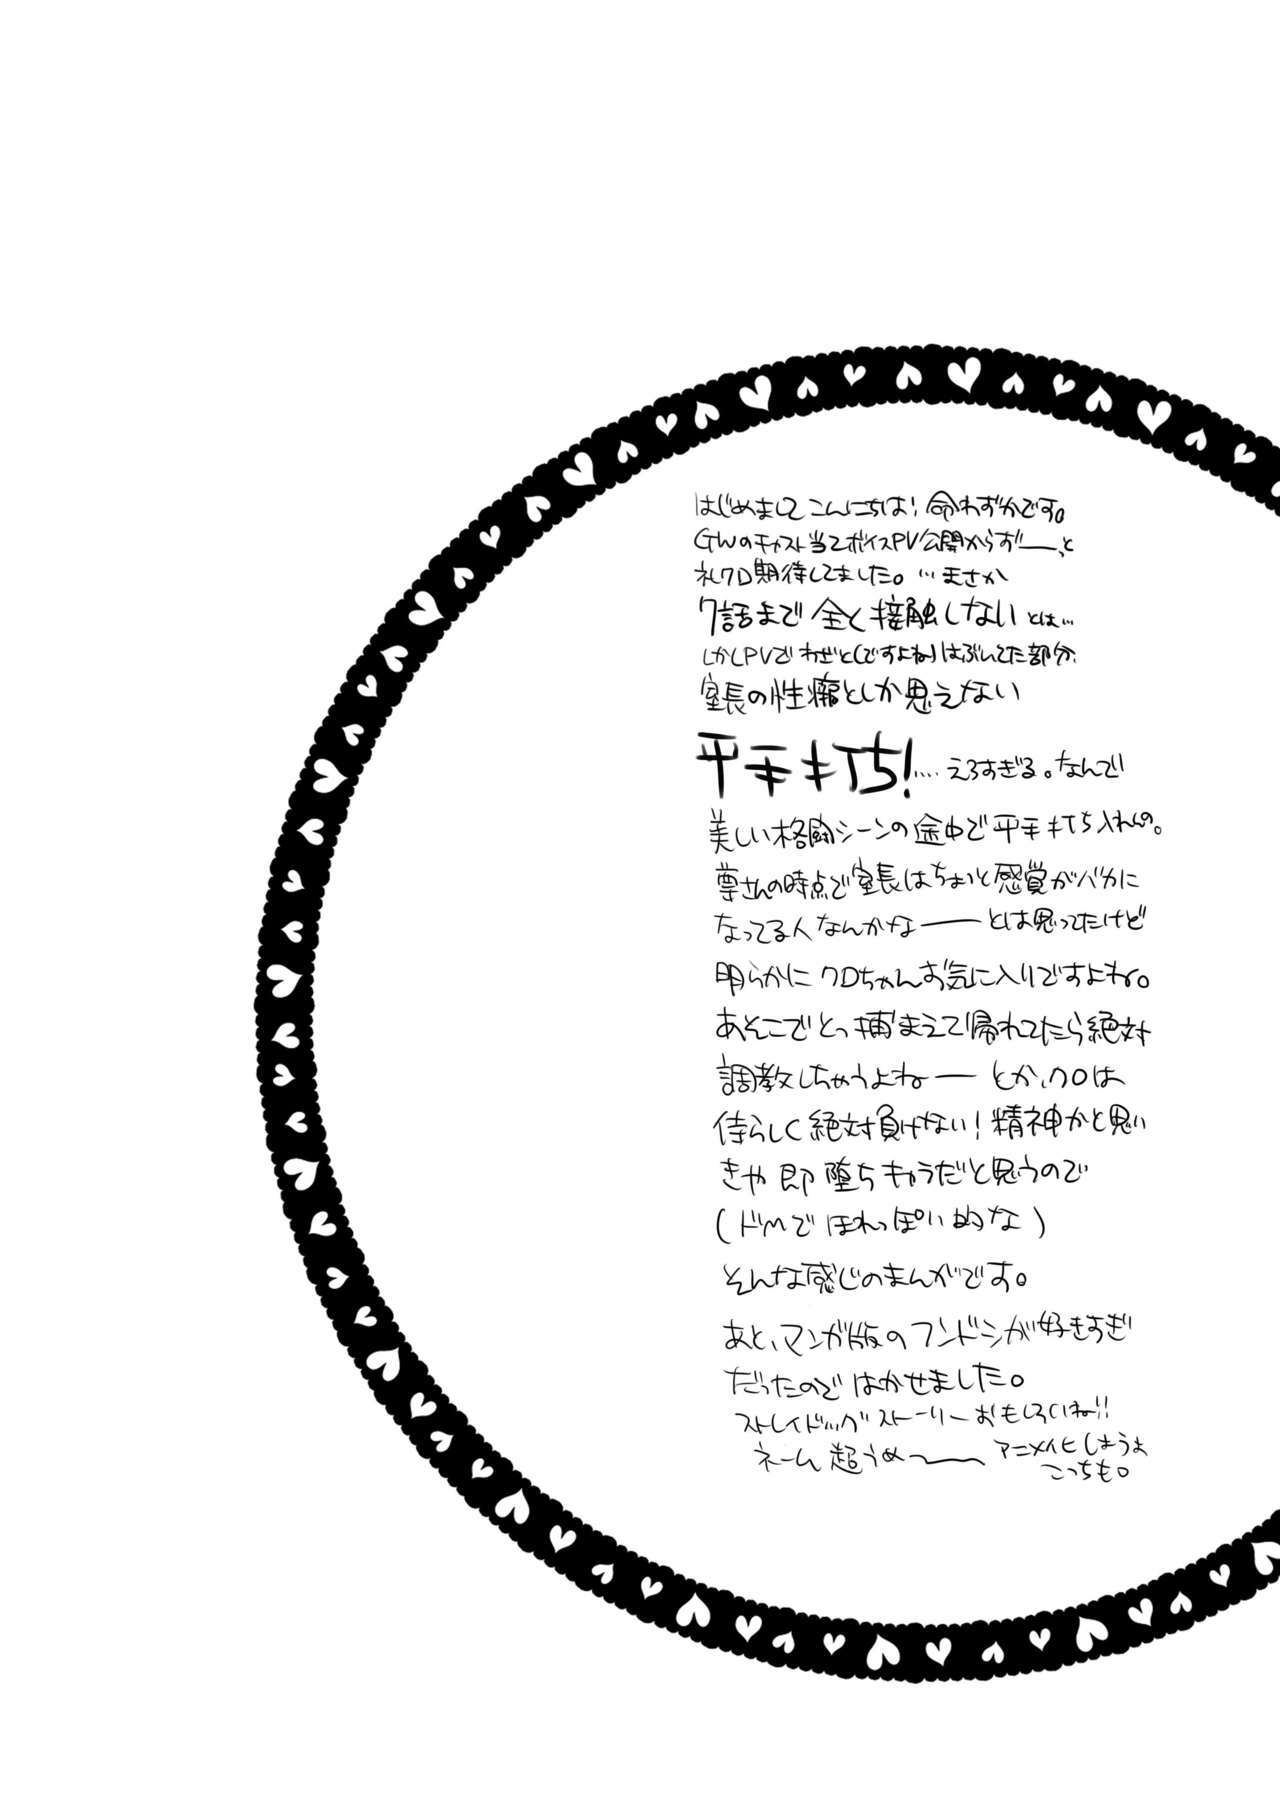 はじめましてこんにちは!命わずかです。
GWのキャスト当てボイスPV公開からずーーっと
礼クロ期待してました。…まさか
7話まで全く接触しないとは…
しかしPVでわざと(ですよね)はぶいてた部分、
室長の性癖としか思えない
平手打ち!…えろすぎる。なんで
美しい格闘シーンの途中で平手打ち入れんの。
尊さんの時点で室長はちょいと感覚がバカに
なってる人なんかなーーとは思ってたけど
明らかにクロちゃんお気に入りですよね。
あそこでとっ捕まえて帰れてたら絶対
調教しちゃうよねーーとか、クロは
侍らしく絶対負けない!精神かと思い
きや即堕ちキャラだと思うので
(ドMでほれっぽい的な)
そんな感じのまんがです。
あと、マンガ版のフンドシが好きすぎ
だったのではかせました。
ストレイドッグストーリーおもしろいね!!
ネーム超うめ〜〜 アニメイヒしようよ
こっちも。